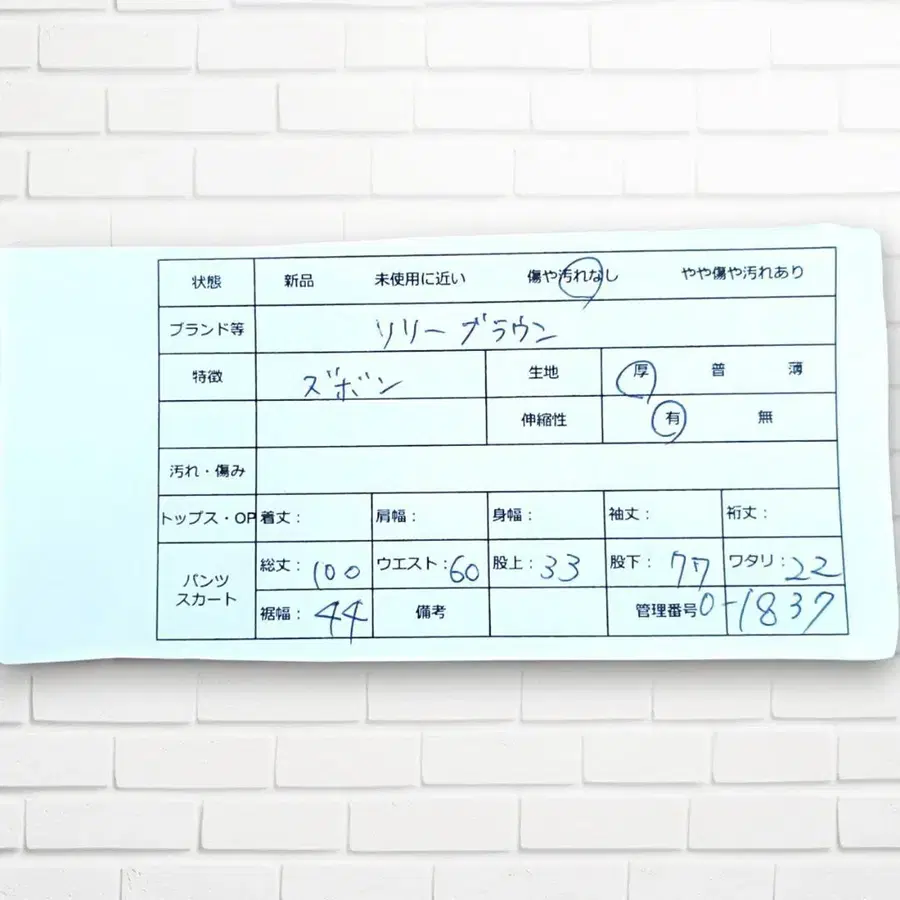 状態 新品 未使用に近い 傷や汚れなし やや傷や汚れあり
ブランド等 リリーブラウン
特徴 ズボン 生地 厚 普 薄
伸縮性 有 無
汚れ・傷み
トップス・OP 着丈： 肩幅： 身幅： 袖丈： 裄丈：
パンツ スカート 総丈：100 ウエスト：60 股上：33 股下：77 ワタリ：22
裾幅：44 備考 管理番号 0-1837